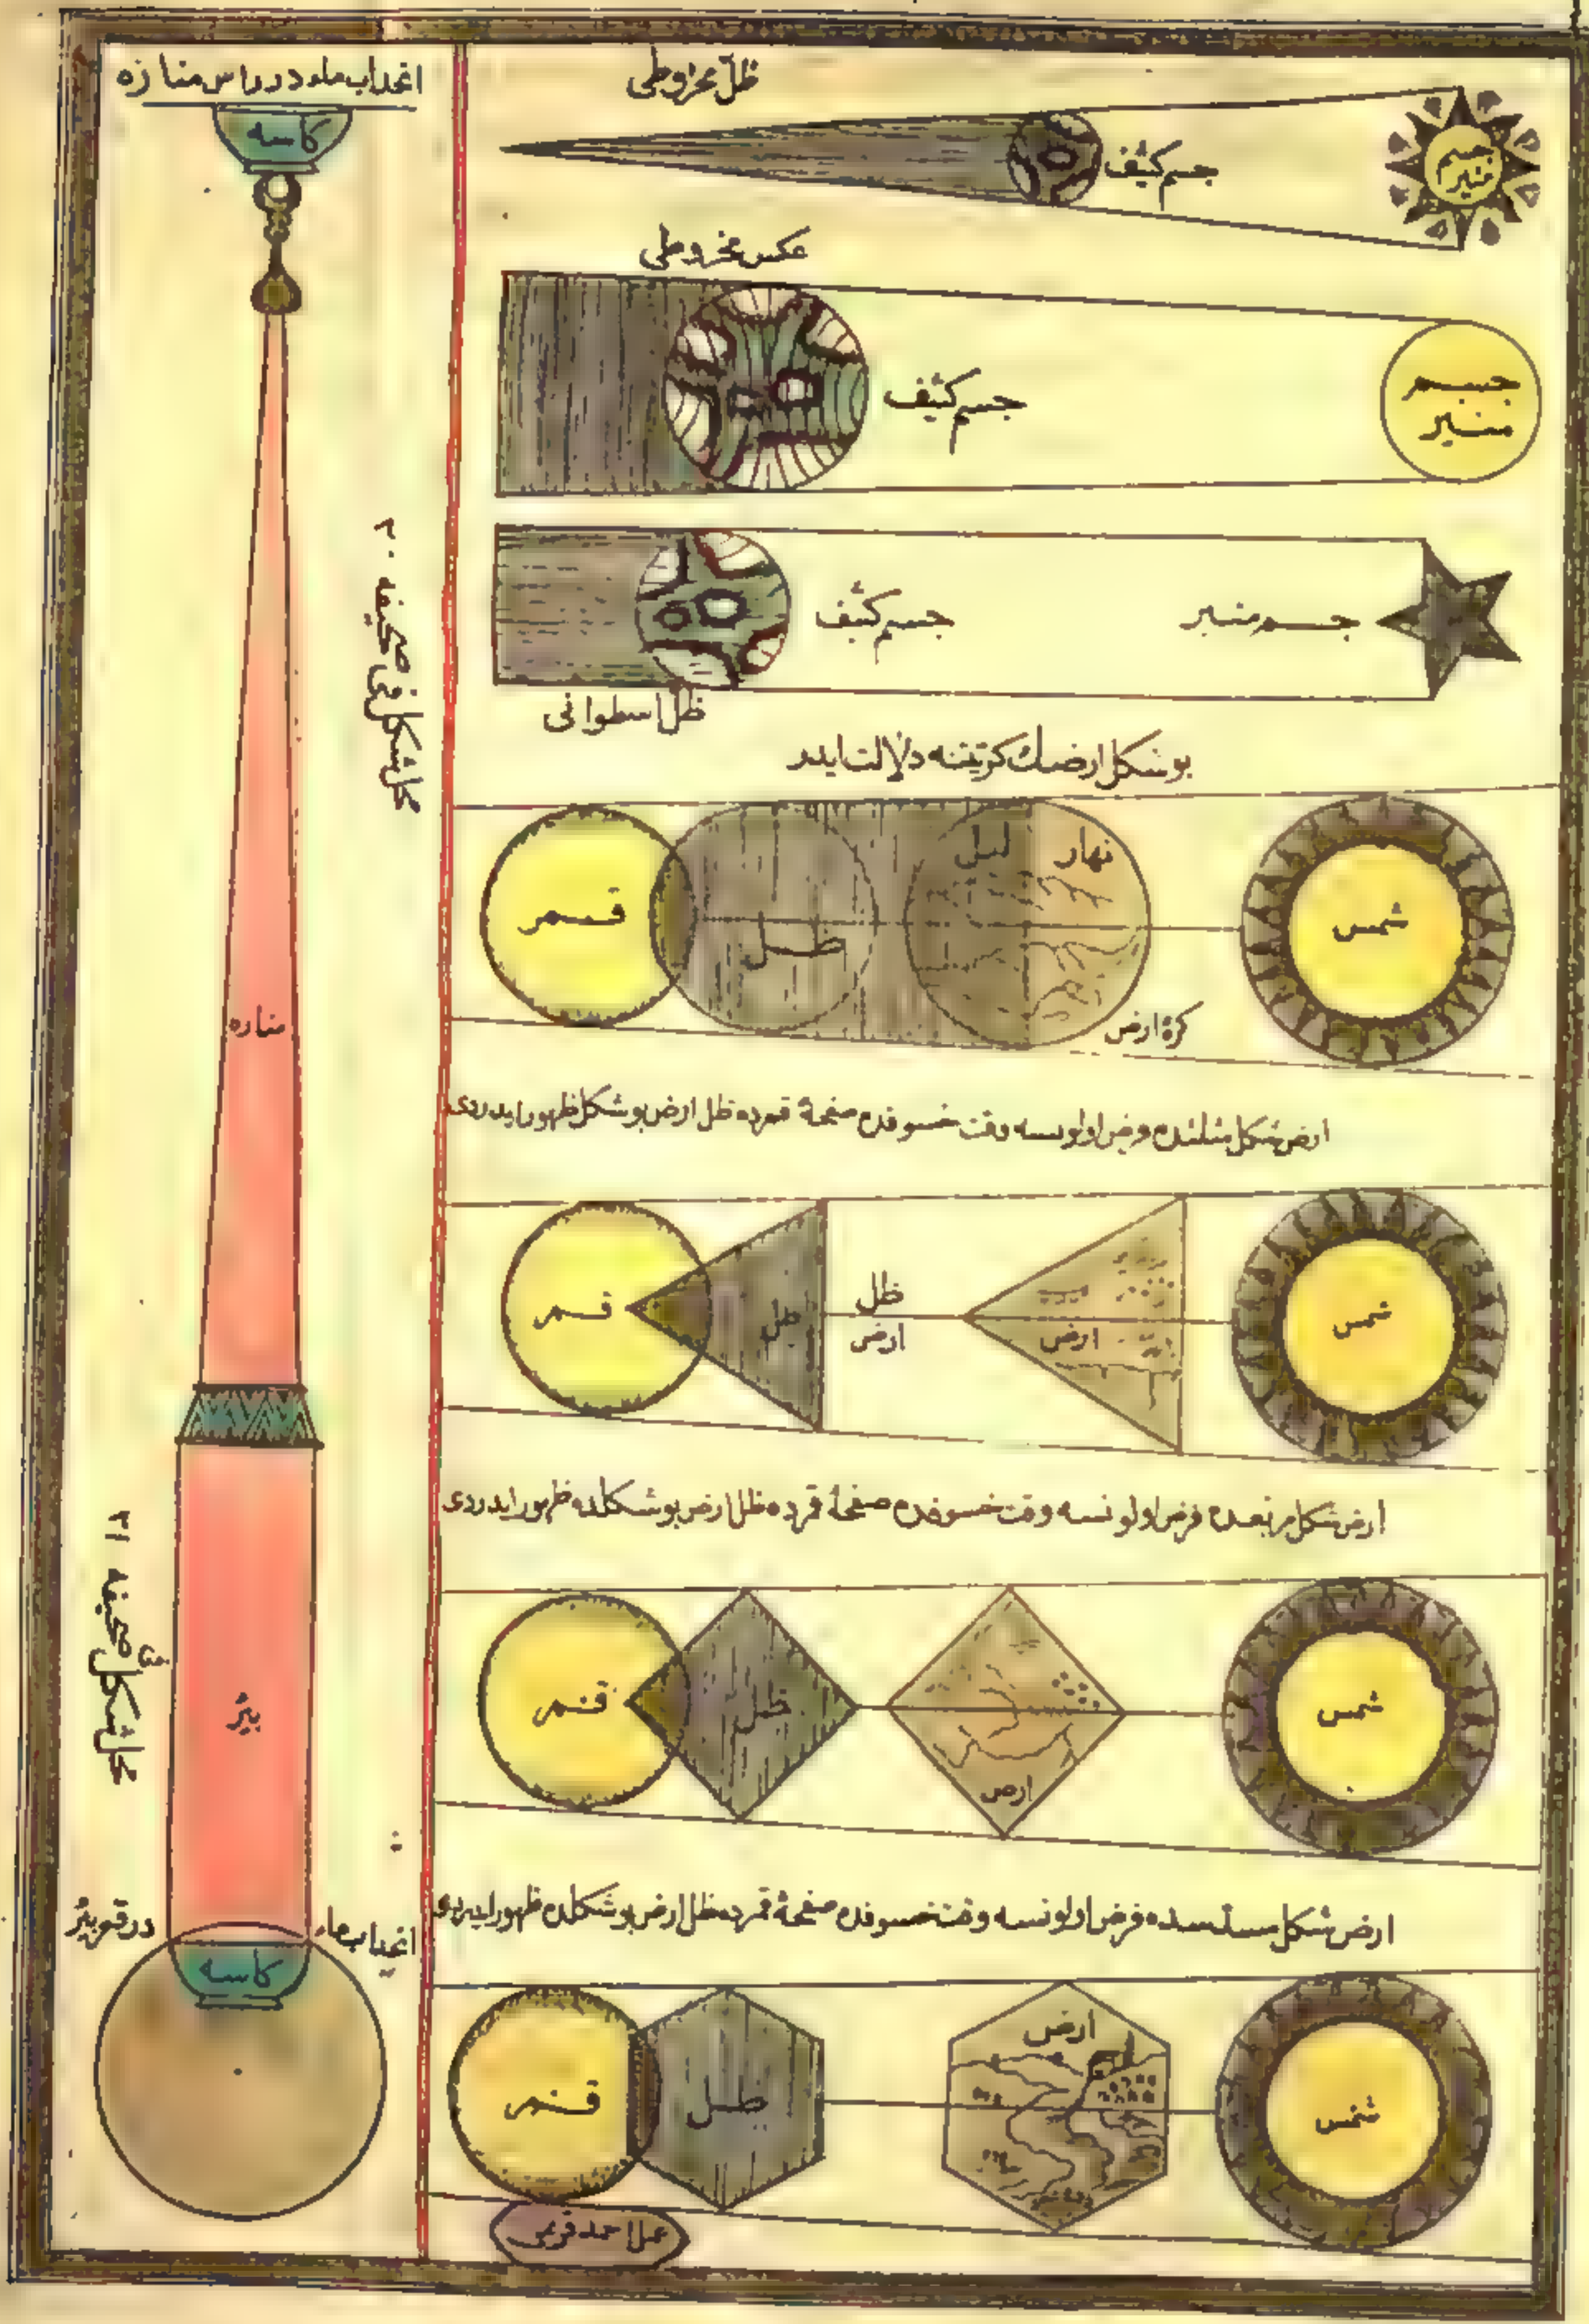 ظلّ مخروطی
جسم منیر
جسم كثیف
عكس مخروطی
جسم
منیر
جسم كثیف
جسم منیر
جسم كثیف
ظل اسطوانی
بو شكل ارضك كرویتنه دلالت ایدر
شمس
نهار
لیل
كرۀ ارض
ظل
قمر
ارض شكل مثلثده فرض اولونسه وقت خسوفده صفحۀ قمرده ظل ارض بو شكل ظهور ایدردی
شمس
ارض
ظل
ارض
ظل
قمر
ارض شكل مربعده فرض اولونسه وقت خسوفده صفحۀ قمرده ظل ارض بو شكلده ظهور ایدردی
شمس
ارض
ظل
قمر
ارض شكل مسدسده فرض اولونسه وقت خسوفده صفحۀ قمرده ظل ارض بو شكلده ظهور ایدردی
شمس
ارض
ظل
قمر
عمل احمد قریمی
انحداب ماء در راس مناره
كاسه
محل شكل فی صحیفه ۳۰
مناره
محل شكل فی صحیفه ۳۱
بئر
انحداب ماء
در قعر بئر
كاسه